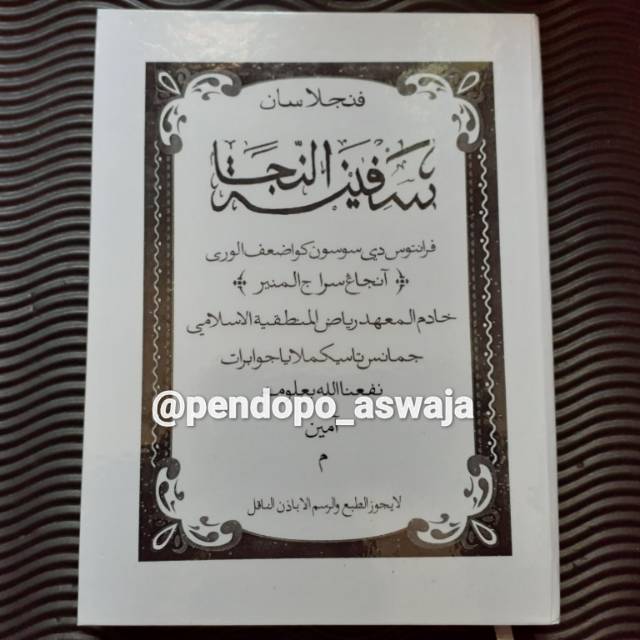 فنجلاسان
سفينة النجا
فراننوس دي سوسون كو اضعف الورى
﴿ آنجاڠ سراج المنير ﴾
خادم المعهد رياض المنطقية الاسلامي
جمانس تاسيكملايا جوابرات
نفعنا الله بعلومه
@pendopo_aswaja
آمين
م
لا يجوز الطبع والرسم الا باذن الناقل